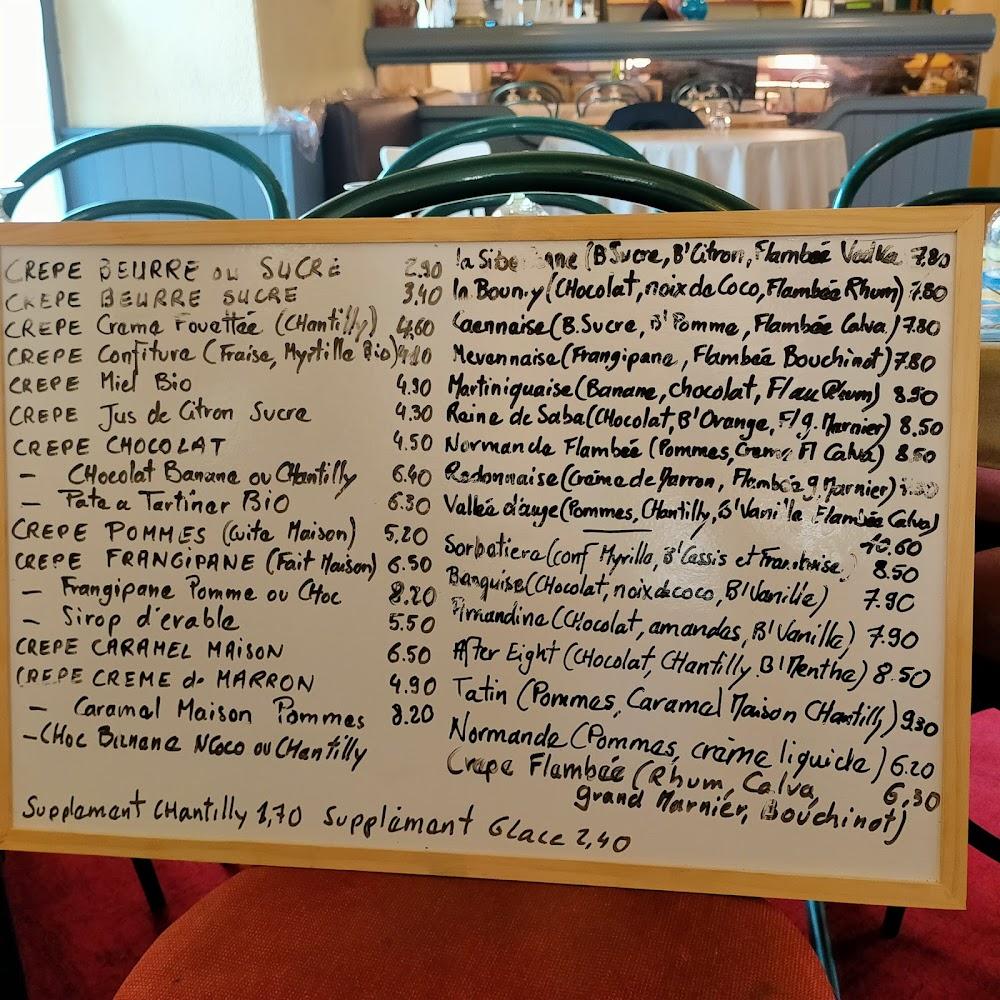 CREPE BEURRE ou SUCRE 2.90
CREPE BEURRE SUCRE 3.40
CREPE Creme Fouettée (CHantilly) 4.60
CREPE Confiture (Fraise, Myrtille Bio)
CREPE Miel Bio 4.90
CREPE Jus de Citron Sucre 4.30
CREPE CHOCOLAT 4.50
- CHocolat Banane ou CHantilly 6.40
- Pate a Tartiner BIO 6.30
CREPE POMMES (cuite Maison) 5.20
CREPE FRANGIPANE (Fait Maison) 6.50
- Frangipane Pomme ou CHoc 8.20
- Sirop d'erable 5.50
CREPE CARAMEL MAISON 6.50
CREPE CREME de MARRON 4.90
- Caramel Maison Pommes 8.20
- CHoc Banane NCoco ou CHantilly
la (B Sucre, B'Citron, Flambée Vodka 7.80
la Bounty (CHocolat, noix de Coco, Flambée Rhum) 7.80
Caennaise (B.Sucre, B'Pomme, Flambée Calva) 7.80
Mevennaise (Frangipane, Flambée Bouchinot) 7.80
Martiniquaise (Banane, chocolat, Fl au Rhum) 8.50
Reine de Saba (CHocolat, B'Orange, Fl g. Marnier) 8.50
Normande Flambée (Pommes, Creme Fl Calva) 8.50
Redonnaise (Crème de Marron, Flambée g. Marnier)
Vallée d'auge (Pommes, CHantilly, B'Vanille Flambée Calva)
10.60
Sorbetiere (conf Myrtille, B'Cassis et Framboise) 8.50
Banquise (CHocolat, noix de coco, B'Vanille) 7.90
Amandine (CHocolat, amandes, B'Vanille) 7.90
After Eight (CHocolat, CHantilly B'Menthe) 8.50
Tatin (Pommes, Caramel Maison CHantilly) 9.30
Normande (Pommes, crème liquide) 6.20
Crepe Flambée (Rhum, Calva, 6.30
grand Marnier, Bouchinot)
Supplement CHantilly 1,70 Supplément Glace 2,40